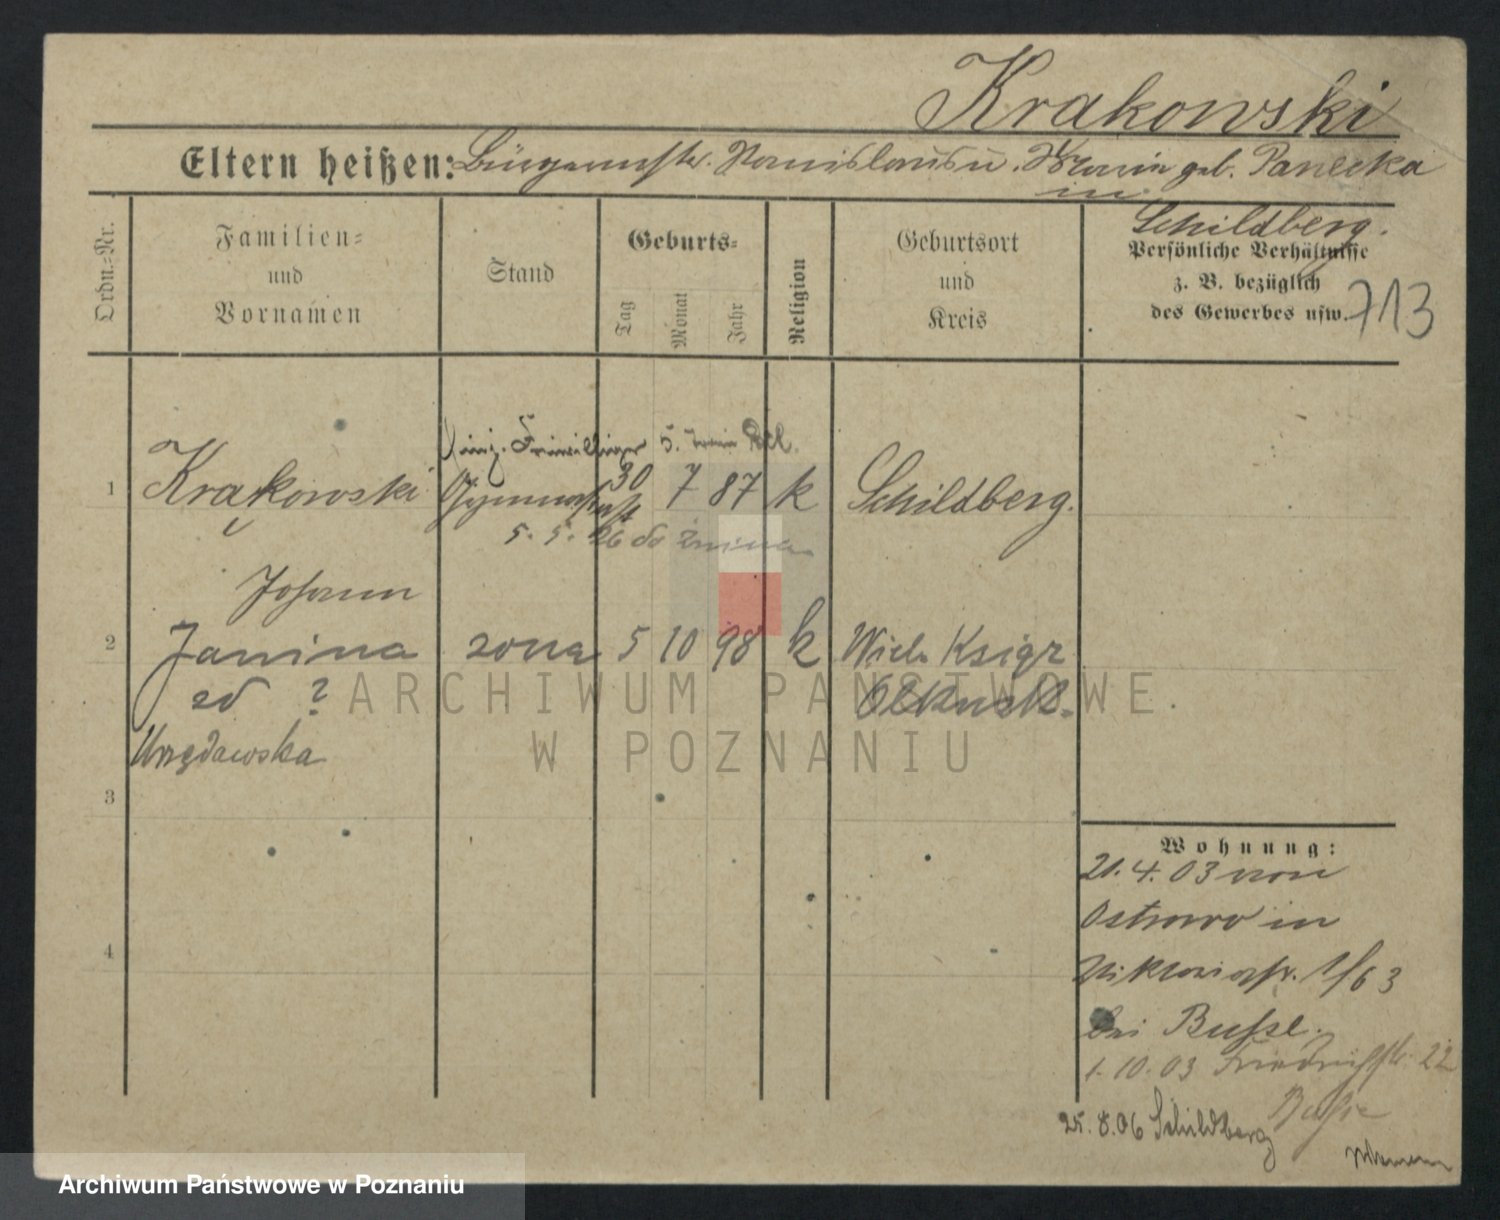 Krakowski
Eltern heißen: Bürgermstr. Stanislaus u. Maria geb. Panecka
in
Schildberg.
Ordn.-Nr.
Familien-
und
Vornamen
Stand
Geburts-
Tag
Monat
Jahr
Religion
Geburtsort
und
Kreis
Persönliche Verhältnisse
z. B. bezüglich
des Gewerbes usw.
713
Einj. Freiwilliger 5.
1 Krakowski Gymnasiast 30 7 87 k Schildberg.
5. 5. 26 do Żnina
Johann
2 Janina żona 5 10 98 k Wielk. Książ
zd ? Olkusk.
Urzędowska
3
4
Wohnung:
21.4.03 von
Ostrowo in
Viktoriastr. 1/63
bei Busse.
1.10.03 Friedrichstr. 22
Busse
25.8.06 Schildberg
ARCHIWUM PAŃSTWOWE
W POZNANIU
Archiwum Państwowe w Poznaniu